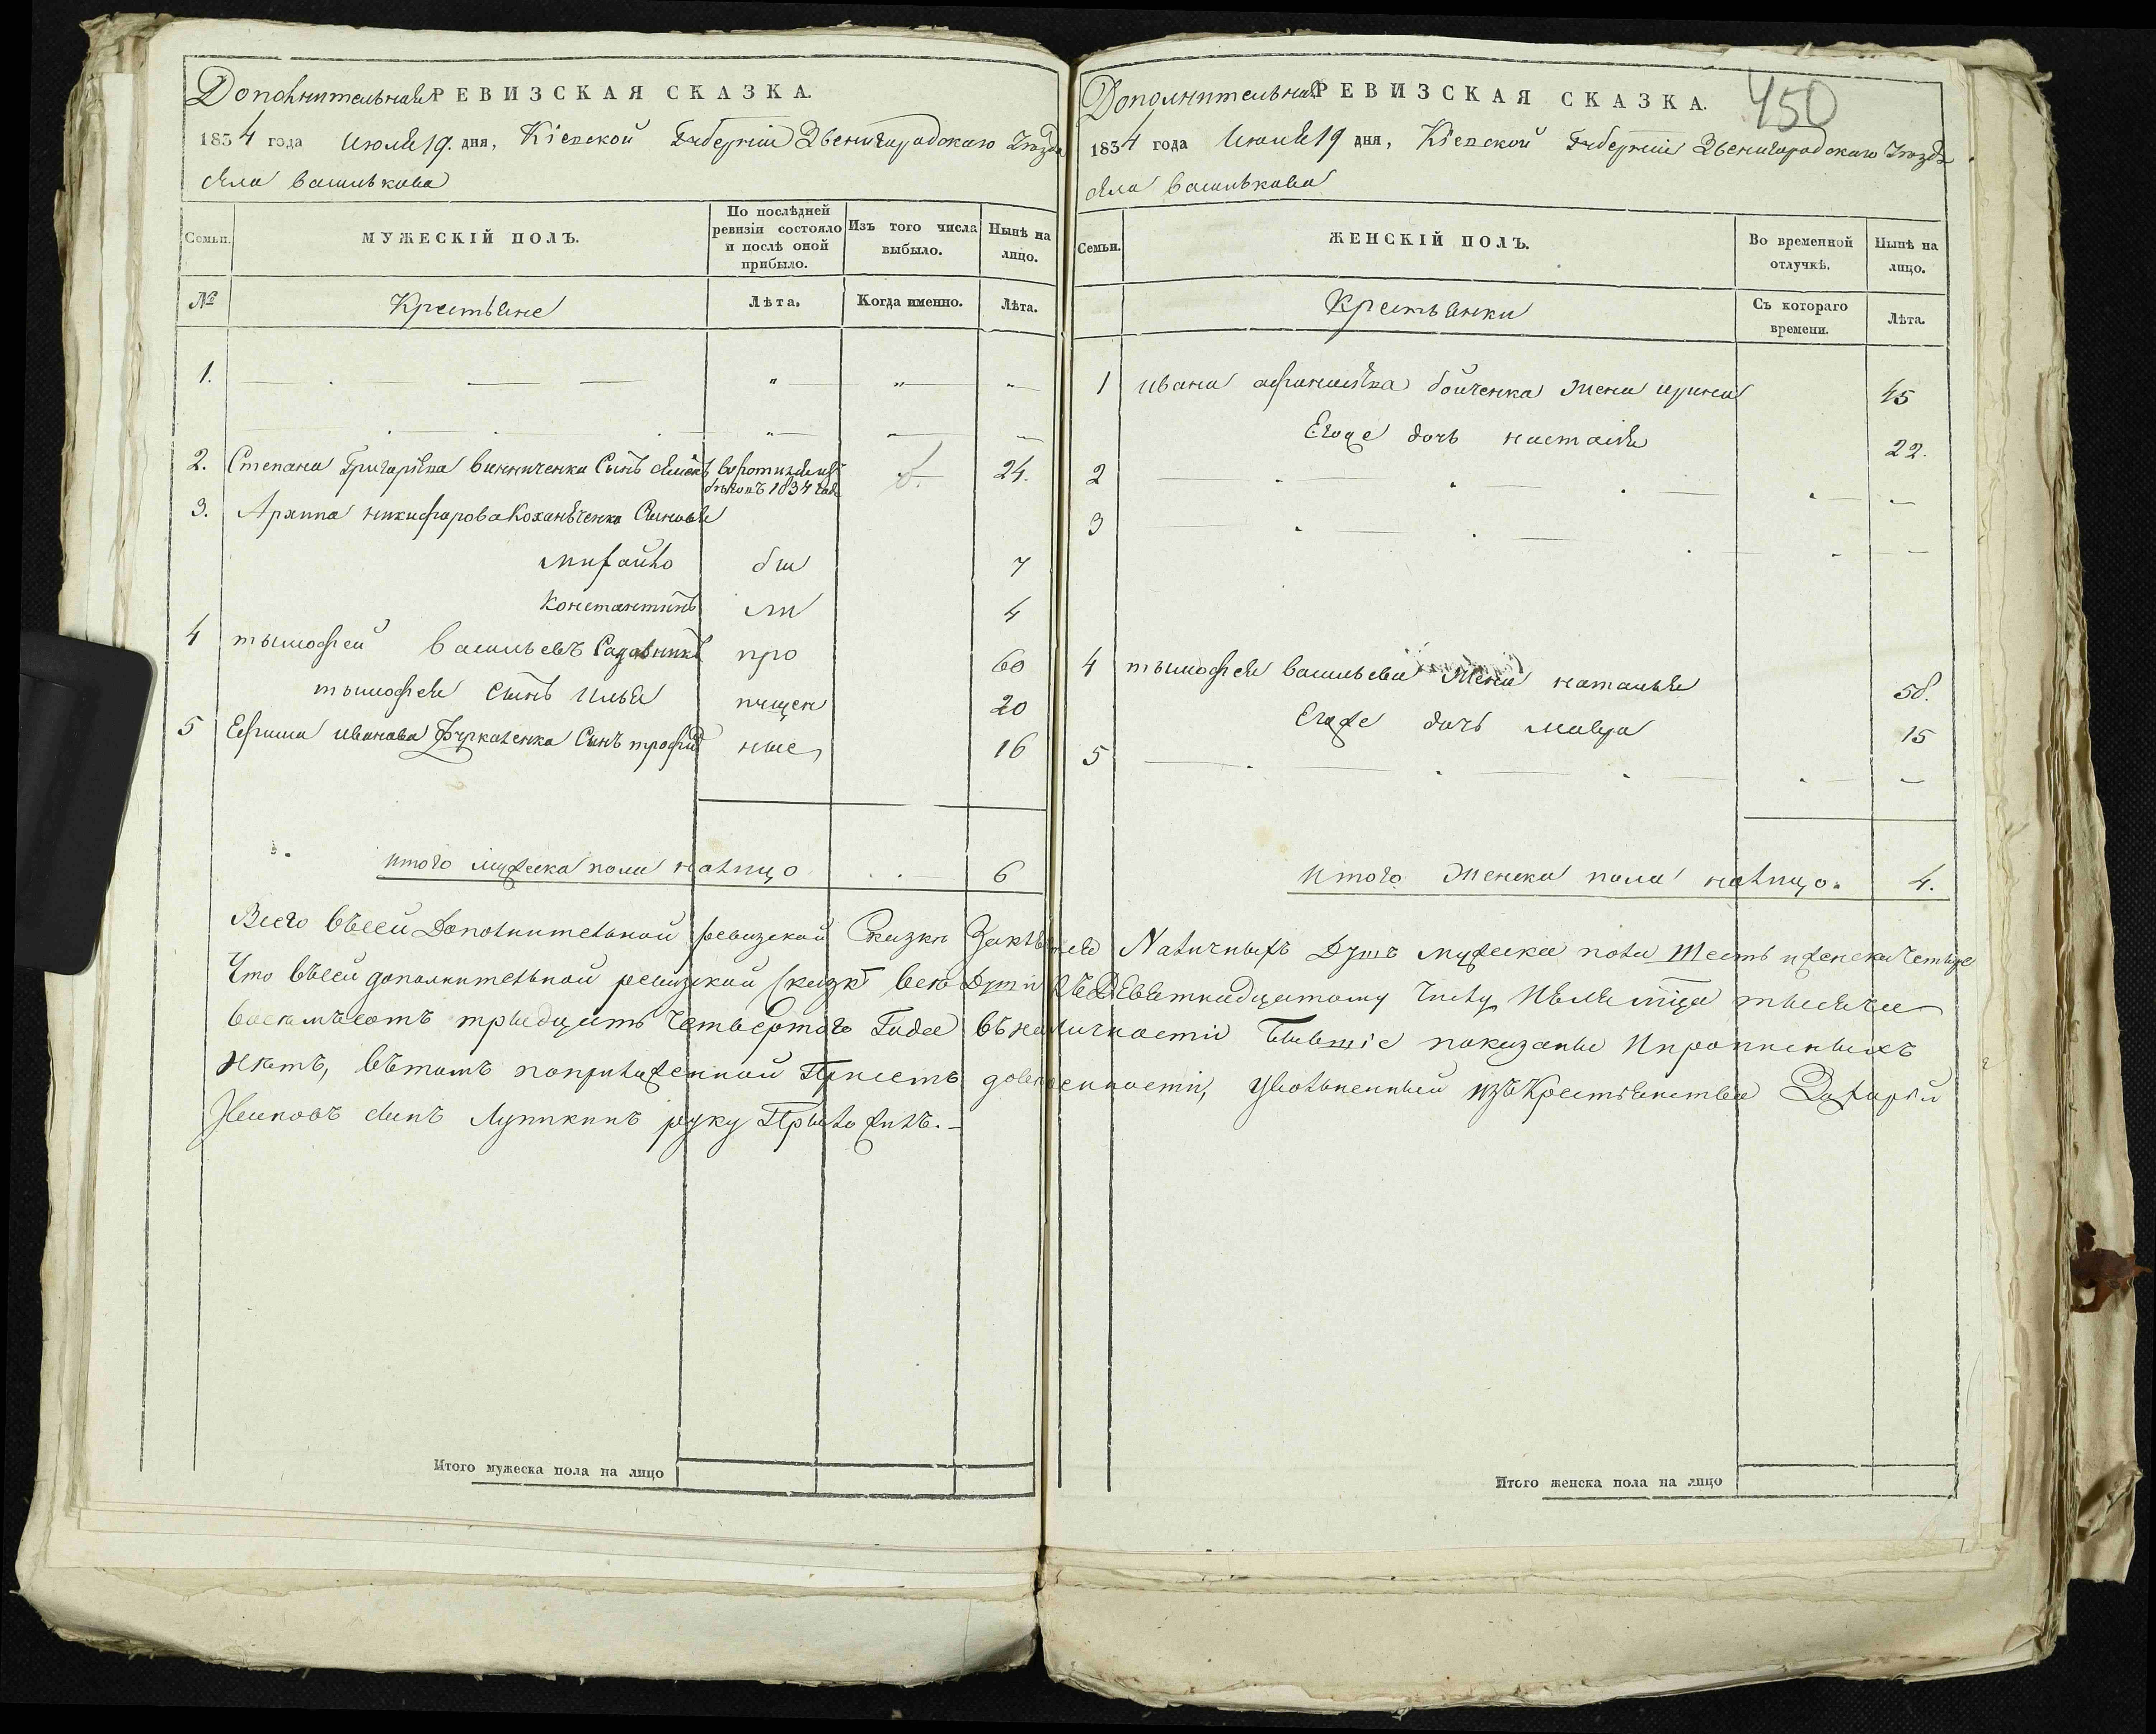 Дополнительная РЕВИЗСКАЯ СКАЗКА.
1834 года Июля 19. дня, Кіевской Губерніи Звенигородскаго Уѣзда
села василькова
Семьи.
МУЖЕСКІЙ ПОЛЪ.
По послѣдней ревизіи состояло и послѣ оной прибыло.
Изъ того числа выбыло.
Нынѣ на лицо.
№
Крестьяне
Лѣта.
Когда именно.
Лѣта.
1.
2. Степана Григорѣва винниченка Сынъ 24.
бѣговъ 1834 года
3. Архипа никифорова Коханьченка Сыновья
михайло бы 7
Константинъ ли 4
4 тымофей васильевъ Садовникъ про 60
тымофея Сынъ Илья пущен 20
5 Ефима иванова Фуркаленка Сынъ трофим ные, 16
итого мужеска пола налицо 6
Дополнительная РЕВИЗСКАЯ СКАЗКА.
450
1834 года Июля 19 дня, Кіевской Губерніи Звенигородскаго Уѣзда
села василькова
Семьи.
ЖЕНСКІЙ ПОЛЪ.
Во временной отлучкѣ.
Нынѣ на лицо.
Крестьянки
Съ котораго времени.
Лѣта.
1 ивана афанасѣва бойченка жена ирина 45
Егоже дочь настасія 22.
2
3
4 тымофея васильева жена наталья 58.
Егоже дочь мавра 15
5
Итого женска пола налицо. 4.
Всего въсей Дополнительной ревизской Сказки Заключено Наличныхъ Душъ мужеска пола Шесть иженска четыре
Что въсей дополнительной ревизской Сказкѣ всѣ Души Къ Девятнадцатому числу Июля мца тысяча
восемьсотъ тридцать Четвертого Года въ наличности Бывшіе показаны Ипропиныхъ
нѣтъ, вътомъ поприложенной Присемъ довѣренности, уволненный изъ Крестьянства Захарій
Луппкинъ руку Приложилъ.
Итого мужеска пола на лицо
Итого женска пола на лицо